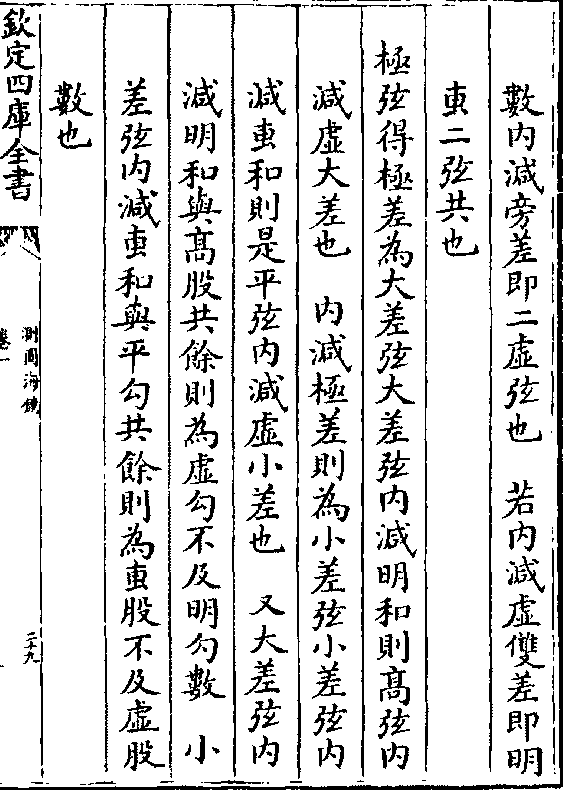 數内減旁差即二虛弦也　若内減虛雙差即明
叀二弦共也
極弦得極差為大差弦大差弦内減明和則髙弦内
減虛大差也　内減極差則為小差弦小差弦内
減叀和則是平弦内減虛小差也　又大差弦内
減明和與髙股共餘則為虛勾不及明勾數　小
差弦内減叀和與平勾共餘則為叀股不及虛股
數也
欽定四庫全書
測圓海鏡
卷一
二十九